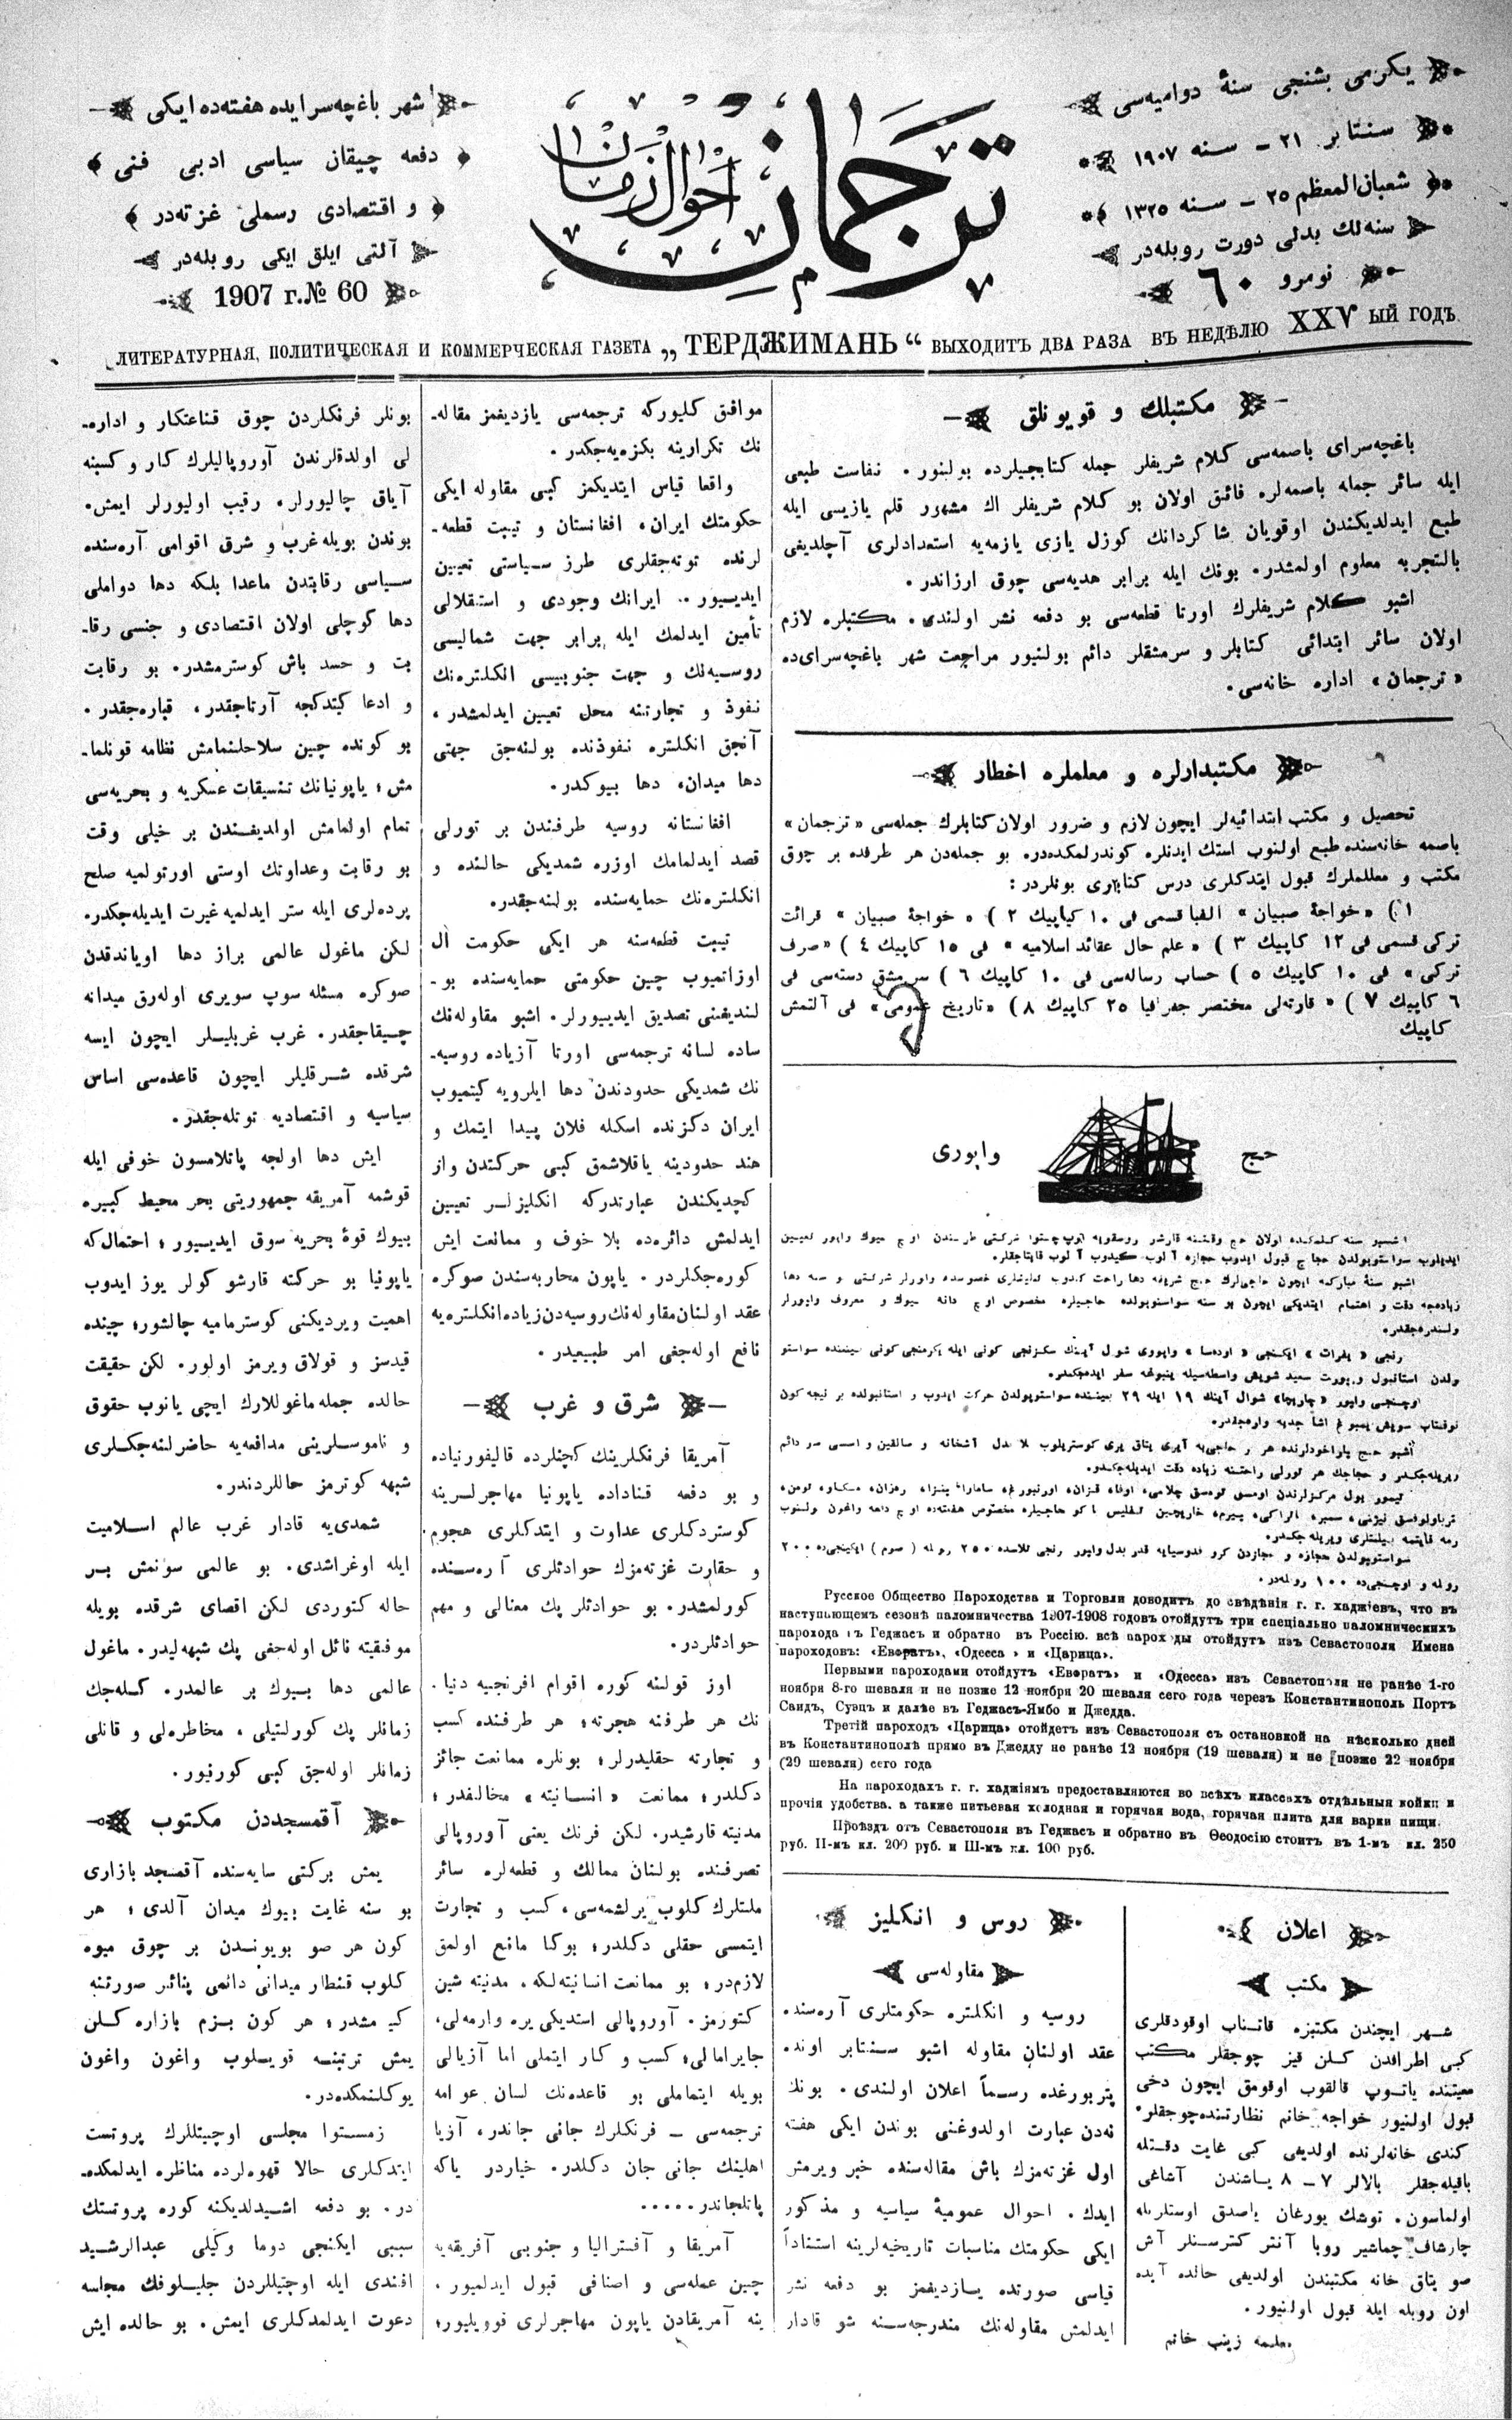 يكرمى بشنجى سنهٔ دواميه‌سى
سنتابر ٢١ ـ سنه ١٩٠٧
شعبان المعظم ٢٥ ـ سنه ١٣٢٥
سنه‌لك بدلى دورت روبله‌در
نومرو ٦٠
ترجمان
احوال زمان
شهر باغچه‌سرايده هفته‌ده ايكى
دفعه چيقان سياسى ادبى فنى
و اقتصادى رسملى غزته‌در
آلتى ايلق ايكى روبله‌در
1907 г. № 60
ЛИТЕРАТУРНАЯ, ПОЛИТИЧЕСКАЯ И КОММЕРЧЕСКАЯ ГАЗЕТА „ТЕРДЖИМАНЬ“ ВЫХОДИТЪ ДВА РАЗА ВЪ НЕДѢЛЮ XXVЫЙ ГОДЪ.
مكتبلك و قويونلق
باغچه‌سراى باصمه‌سى كلام شريفلر جمله كتابجيلرده بولنور. نفاست طبعى
ايله سائر جمله باصمه‌لره فائق اولان بو كلام شريفلر اك مشهور قلم يازيسى ايله
طبع ايدلديكندن اوقويان شاكردانك كوزل يازى يازمه‌يه استعدادلرى آچلديغى
بالتجربه معلوم اولمشدر. بونك ايله برابر هديه‌سى چوق ارزاندر.
اشبو كلام شريفلرك اورتا قطعه‌سى بو دفعه نشر اولندى. مكتبلره لازم
اولان سائر ابتدائى كتابلر و سرمشقلر دائم بولنيور مراجعت شهر باغچه‌سراى‌ده
«ترجمان» اداره خانه‌سى.
مكتبدارلره و معلملره اخطار
تحصيل و مكتب ابتدائيه‌لر ايچون لازم و ضرور اولان كتابلرك جمله‌سى «ترجمان»
باصمه خانه‌سنده طبع اولنوب استك ايدنلره كوندرلمكده‌در. بو جمله‌دن هر طرفده بر چوق
مكتب و معلملرك قبول ايتدكلرى درس كتابلرى بونلردر:
١) «خواجهٔ صبيان» الفبا قسمى فى ١٠ كپاييك ٢) «خواجهٔ صبيان» قرائت
تركى قسمى فى ١٢ كاپيك ٣) «علم حال عقائد اسلاميه» فى ١٥ كاپيك ٤) «صرف
تركى» فى ١٠ كاپيك ٥) حساب رساله‌سى فى ١٠ كاپيك ٦) سرمشق دسته‌سى فى
٦ كاپيك ٧) «قارته‌لى مختصر جغرافيا ٢٥ كاپيك ٨) «تاريخ عمومى» فى آلتمش
كاپيك
حج واپورى
Русское Общество Пароходства и Торговли доводитъ до свѣдѣнія г. г. хаджіевъ, что въ
наступающемъ сезонѣ паломничества 1907-1908 годовъ отойдутъ три спеціально паломническихъ
парохода въ Геджасъ и обратно въ Россію. всѣ пароходы отойдутъ изъ Севастополя Имена
пароходовъ: «Евфратъ», «Одесса» и «Царица».
Первыми пароходами отойдутъ «Евфратъ» и «Одесса» изъ Севастополя не ранѣе 1-го
ноября 8-го шеваля и не позже 12 ноября 20 шеваля сего года черезъ Константинополь Портъ
Саидъ, Суэцъ и далѣе въ Геджасъ-Ямбо и Джедда.
Третій пароходъ «Царица» отойдетъ изъ Севастополя съ остановкой на нѣсколько дней
въ Константинополѣ прямо въ Джедду не ранѣе 12 ноября (19 шеваля) и не позже 22 ноября
(29 шеваля) сего года
На пароходахъ г. г. хаджіямъ предоставляются во всѣхъ классахъ отдѣльныя койки и
прочія удобства. а также питьевая холодная и горячая вода, горячая плита для варки пищи.
Проѣздъ отъ Севастополя въ Геджасъ и обратно въ Ѳеодосію стоитъ въ 1-мъ кл. 250
руб. II-мъ кл. 200 руб. и Ш-мъ кл. 100 руб.
اعلان
مكتب
شهر ايچندن مكتبزه قاتناب اوقودقلرى
كبى اطرافدن كلن قيز چوجقلر مكتب
معيتنده ياتوپ قالقوب اوقومق ايچون دخى
قبول اولنيور خواجه خانم نظارتنده چوجقلر
كندى خانه‌لرنده اولديغى كبى غايت دقتله
باقيله‌جقلر بالالر ٧ ـ ٨ ياشندن آشاغى
اولماسون. توشك يورغان ياصدق اوستلريله
چارشاف چماشير روبا آنتر كترسنلر آش
صو ياتاق خانه مكتبندن اولديغى حالده آيده
اون روبله ايله قبول اولنيور.
معلمه زينب خانم
روس و انكليز
مقاوله‌سى
روسيه و انكلتره حكومتلرى آره‌سنده
عقد اولنان مقاوله اشبو سنتابر اونده
پتربورغده رسماً اعلان اولندى. بونك
نه‌دن عبارت اولدوغنى بوندن ايكى هفته
اول غزته‌مزك باش مقاله‌سنده خبر ويرمش
ايدك. احوال عموميهٔ سياسيه و مذكور
ايكى حكومتك مناسبات تاريخيه‌لرينه استناداً
قياسى صورتده يازديغمز بو دفعه نشر
ايدلمش مقاوله‌نك مندرجه‌سنه شو قادار
موافق كليوركه ترجمه‌سى يازديغمز مقاله‌ـ
نك تكرارينه بكزه‌يه‌جكدر.
واقعا قياس ايتديكمز كبى مقاوله ايكى
حكومتك ايران، افغانستان و تيبت قطعه‌ـ
لرنده توته‌جقلرى طرز سياستى تعيين
ايديور. ايرانك وجودى و استقلالى
تأمين ايدلمك ايله برابر جهت شماليسى
روسيه‌نك و جهت جنوبيسى انكلتره‌نك
نفوذ و تجارتنه محل تعيين ايدلمشدر،
آنجق انكلتره نفوذنده بولنه‌جق جهتى
دها ميدان، دها بيوكدر.
افغانستانه روسيه طرفندن بر تورلى
قصد ايدلمامك اوزره شمديكى حالنده و
انكلتره‌نك حمايه‌سنده بولنه‌جقدر.
تيبت قطعه‌سنه هر ايكى حكومت ال
اوزاتميوب چين حكومتى حمايه‌سنده بوـ
لنديغنى تصديق ايديورلر. اشبو مقاوله‌نك
ساده لسانه ترجمه‌سى اورتا آزياده روسيه‌ـ
نك شمديكى حدودندن دها ايلرويه كيتميوب
ايران دكزنده اسكله فلان پيدا ايتمك و
هند حدودينه ياقلاشمق كبى حركتدن واز
كچديكندن عبارتدركه انكليزلر تعيين
ايدلمش دائره‌ده بلا خوف و ممانعت ايش
كوره‌جكلردر. ياپون محاربه‌سندن صوكره
عقد اولنان مقاوله‌نك روسيه‌دن زياده انكلتره‌يه
نافع اوله‌جغى امر طبيعيدر.
شرق و غرب
آمريقا فرنكلرينك كچنلرده قاليفورنياده
و بو دفعه قناداده ياپونيا مهاجرلرينه
كوستردكلرى عداوت و ايتدكلرى هجوم
و حقارت غزته‌مزك حوادثلرى آره‌سنده
كورلمشدر. بو حوادثلر پك معنالى و مهم
حوادثلردر.
اوز قولنه كوره اقوام افرنجيه دنياـ
نك هر طرفنه هجرته؛ هر طرفنده كسب
و تجارته حقليدرلر؛ بونلره ممانعت جائز
دكلدر؛ ممانعت «انسانيته» مخالفدر؛
مدنيته قارشيدر. لكن فرنك يعنى آوروپالى
تصرفنده بولنان ممالك و قطعه‌لره سائر
ملتلرك كلوب يرلشمه‌سى، كسب و تجارت
ايتمسى حقلى دكلدر؛ بوكا مانع اولمق
لازم‌در؛ بو ممانعت انسانيته لكه، مدنيته شين
كتورمز. آوروپالى استديكى يره وارمه‌لى،
جايرامالى؛ كسب و كار ايتملى اما آزيالى
بويله ايتماملى بو قاعده‌نك لسان عوامه
ترجمه‌سى ـ فرنكلرك جانى جاندر، آزيا
اهلينك جانى جان دكلدر. خياردر ياكه
پاتلجاندر.....
آمريقا و آفستراليا و جنوبى آفريقه‌يه
چين عمله‌سى و اصنافى قبول ايدلميور.
ينه آمريقادن ياپون مهاجرلرى قوويليور؛
بونلر فرنكلردن چوق قناعتكار و اداره‌ـ
لى اولدقلرندن آوروپاليلرك كار و كسبنه
آياق چاليورلر، رقيب اوليورلر ايمش.
بوندن بويله غرب و شرق اقوامى آره‌سنده
سياسى رقابتدن ماعدا بلكه دها دواملى
دها كوچلى اولان اقتصادى و جنسى رقاـ
بت و حسد باش كوسترمشدر. بو رقابت
و ادعا كيتدكجه آرتاجقدر، قباره‌جقدر.
بو كونده چين سلاحلنمامش نظامه قونلماـ
مش؛ ياپونيانك تنسيقات عسكريه و بحريه‌سى
تمام اولمامش اولديغندن بر خيلى وقت
بو رقابت وعداوتك اوستى اورتولميه صلح
پرده‌لرى ايله ستر ايدلميه غيرت ايديله‌جكدر.
لكن ماغول عالمى براز دها اوياندقدن
صوكره مسئله سوپ سويرى اوله‌رق ميدانه
چيقاجقدر. غرب غربليلر ايچون ايسه
شرقده شرقليلر ايچون قاعده‌سى اساس
سياسيه و اقتصاديه توتله‌جقدر.
ايش دها اولجه پاتلامسون خوفى ايله
قوشمه آمريقه جمهوريتى بحر محيط كبيره
بيوك قوهٔ بحريه سوق ايديور؛ احتمال‌كه
ياپونيا بو حركته قارشو كولر يوز ايدوب
اهميت ويرديكنى كوسترماميه چالشور؛ چينده
قيدسز و قولاق ويرمز اولور. لكن حقيقت
حالده جمله ماغوللارك ايچى يانوب حقوق
و ناموسلرينى مدافعه‌يه حاضرلنه‌جكلرى
شبهه كوترمز حاللردندر.
شمدى‌يه قادار غرب عالم اسلاميت
ايله اوغراشدى. بو عالمى سونمش بر
حاله كتوردى لكن اقصاى شرقده بويله
موفقيته نائل اوله‌جغى پك شبهه‌ليدر. ماغول
عالمى دها بيوك بر عالمدر. كله‌جك
زمانلر پك كورلتيلى، مخاطره‌لى و قانلى
زمانلر اوله‌جق كبى كورنيور.
آقمسجددن مكتوب
يمش بركتى سايه‌سنده آقمسجد بازارى
بو سنه غايت بيوك ميدان آلدى؛ هر
كون هر صو بويوندن بر چوق ميوه
كلوب قنطار ميدانى دائمى پناير صورتنه
كيرمشدر؛ هر كون بزم بازاره كلن
يمش ترتبنه قويلوب واغون واغون
يوكلنمكده‌در.
زمستوا مجلسى اوچيتللرك پروتست
ايتدكلرى حالا قهوه‌لرده مناظره ايدلمكده‌ـ
در. بو دفعه اشيدلديكنه كوره پروتستك
سببى ايكنجى دوما وكيلى عبدالرشيد
افندى ايله اوچتيللردن جليلوفك مجلسه
دعوت ايدلمدكلرى ايمش. بو حالده ايش